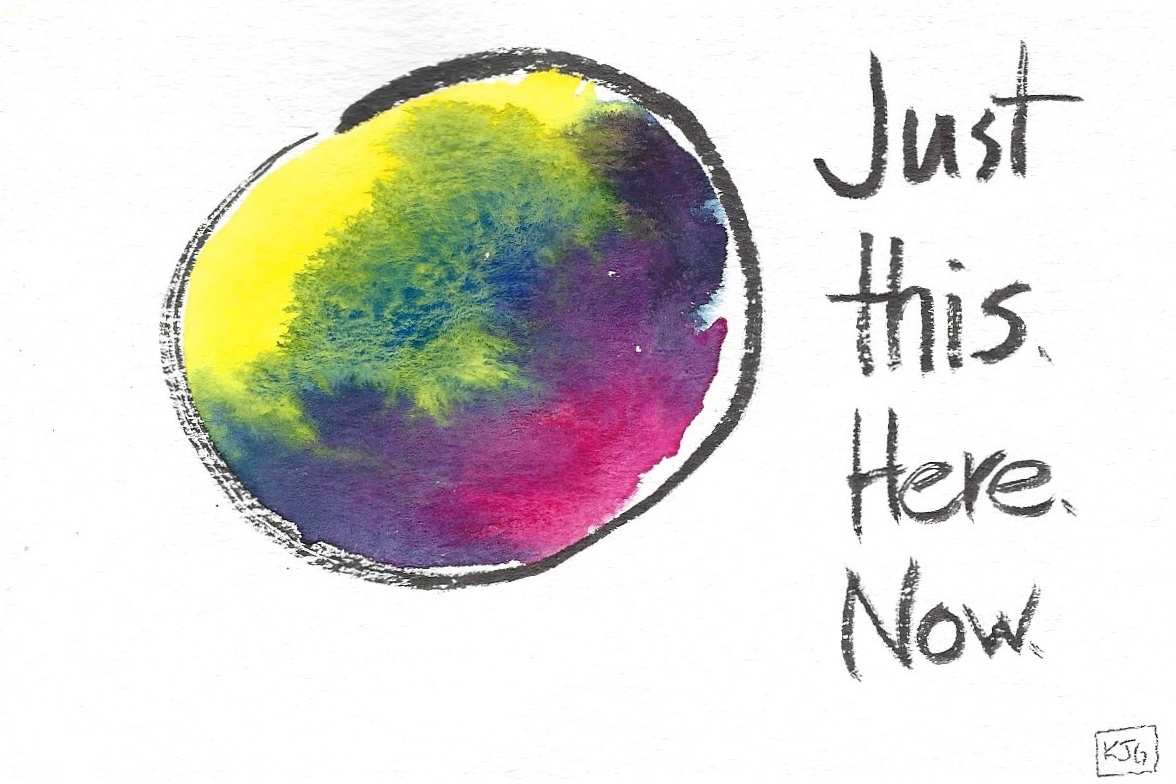 Just
this.
Here.
Now.
KJG